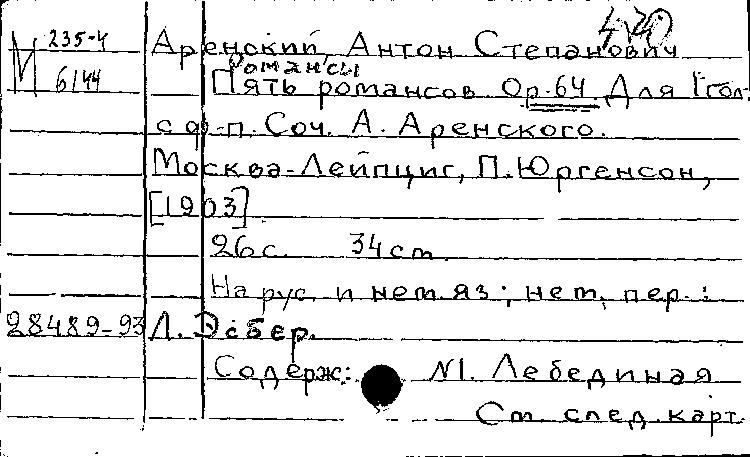 4420
М 235-4
6144
Аренский, Антон Степанович
Романсы
Пять романсов. Ор. 64. Для 1 гол.
с ф-п. Соч. А. Аренского.
Москва-Лейпциг, П. Юргенсон,
[1903].
26 с. 34 см.
На рус. и нем. яз; нем. пер.:
28489-93 Л. Эсбер.
Содерж: N1. Лебединая
См. след. карт.